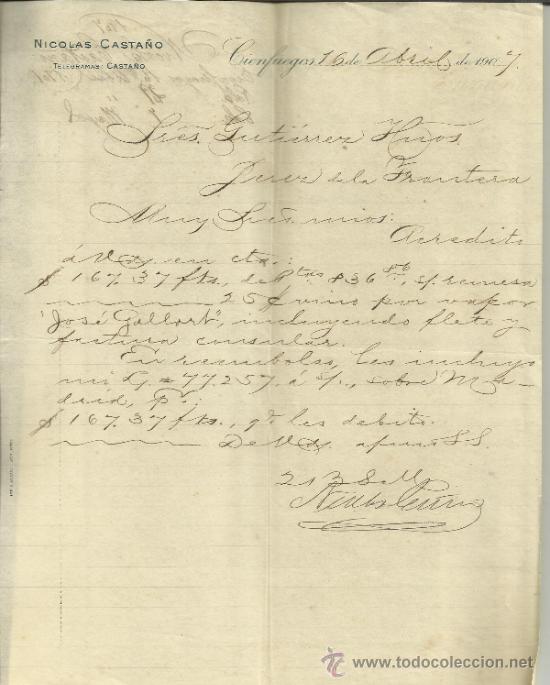 NICOLAS CASTAÑO
TELEGRAMAS: CASTAÑO
Cienfuegos 16 de Abril de 1907.
Sres. Gutiérrez Hnos.
Jerez de la Frontera
Muy Sres. mios:
Acredito
á Vds. en cta.:
$ 167.37 fts., de Ptas 836 s/. remesa
25 c/ vino por vapor
"José Gallart", incluyendo flete y
factura consular.
En reembolso, les incluyo
mi L/ 77.257 á s/., sobre Ma-
drid, Pr.:
$ 167.37 fts., qe. les debito.
De Vds. afmo S.S.
todocoleccion
www.todocoleccion.net